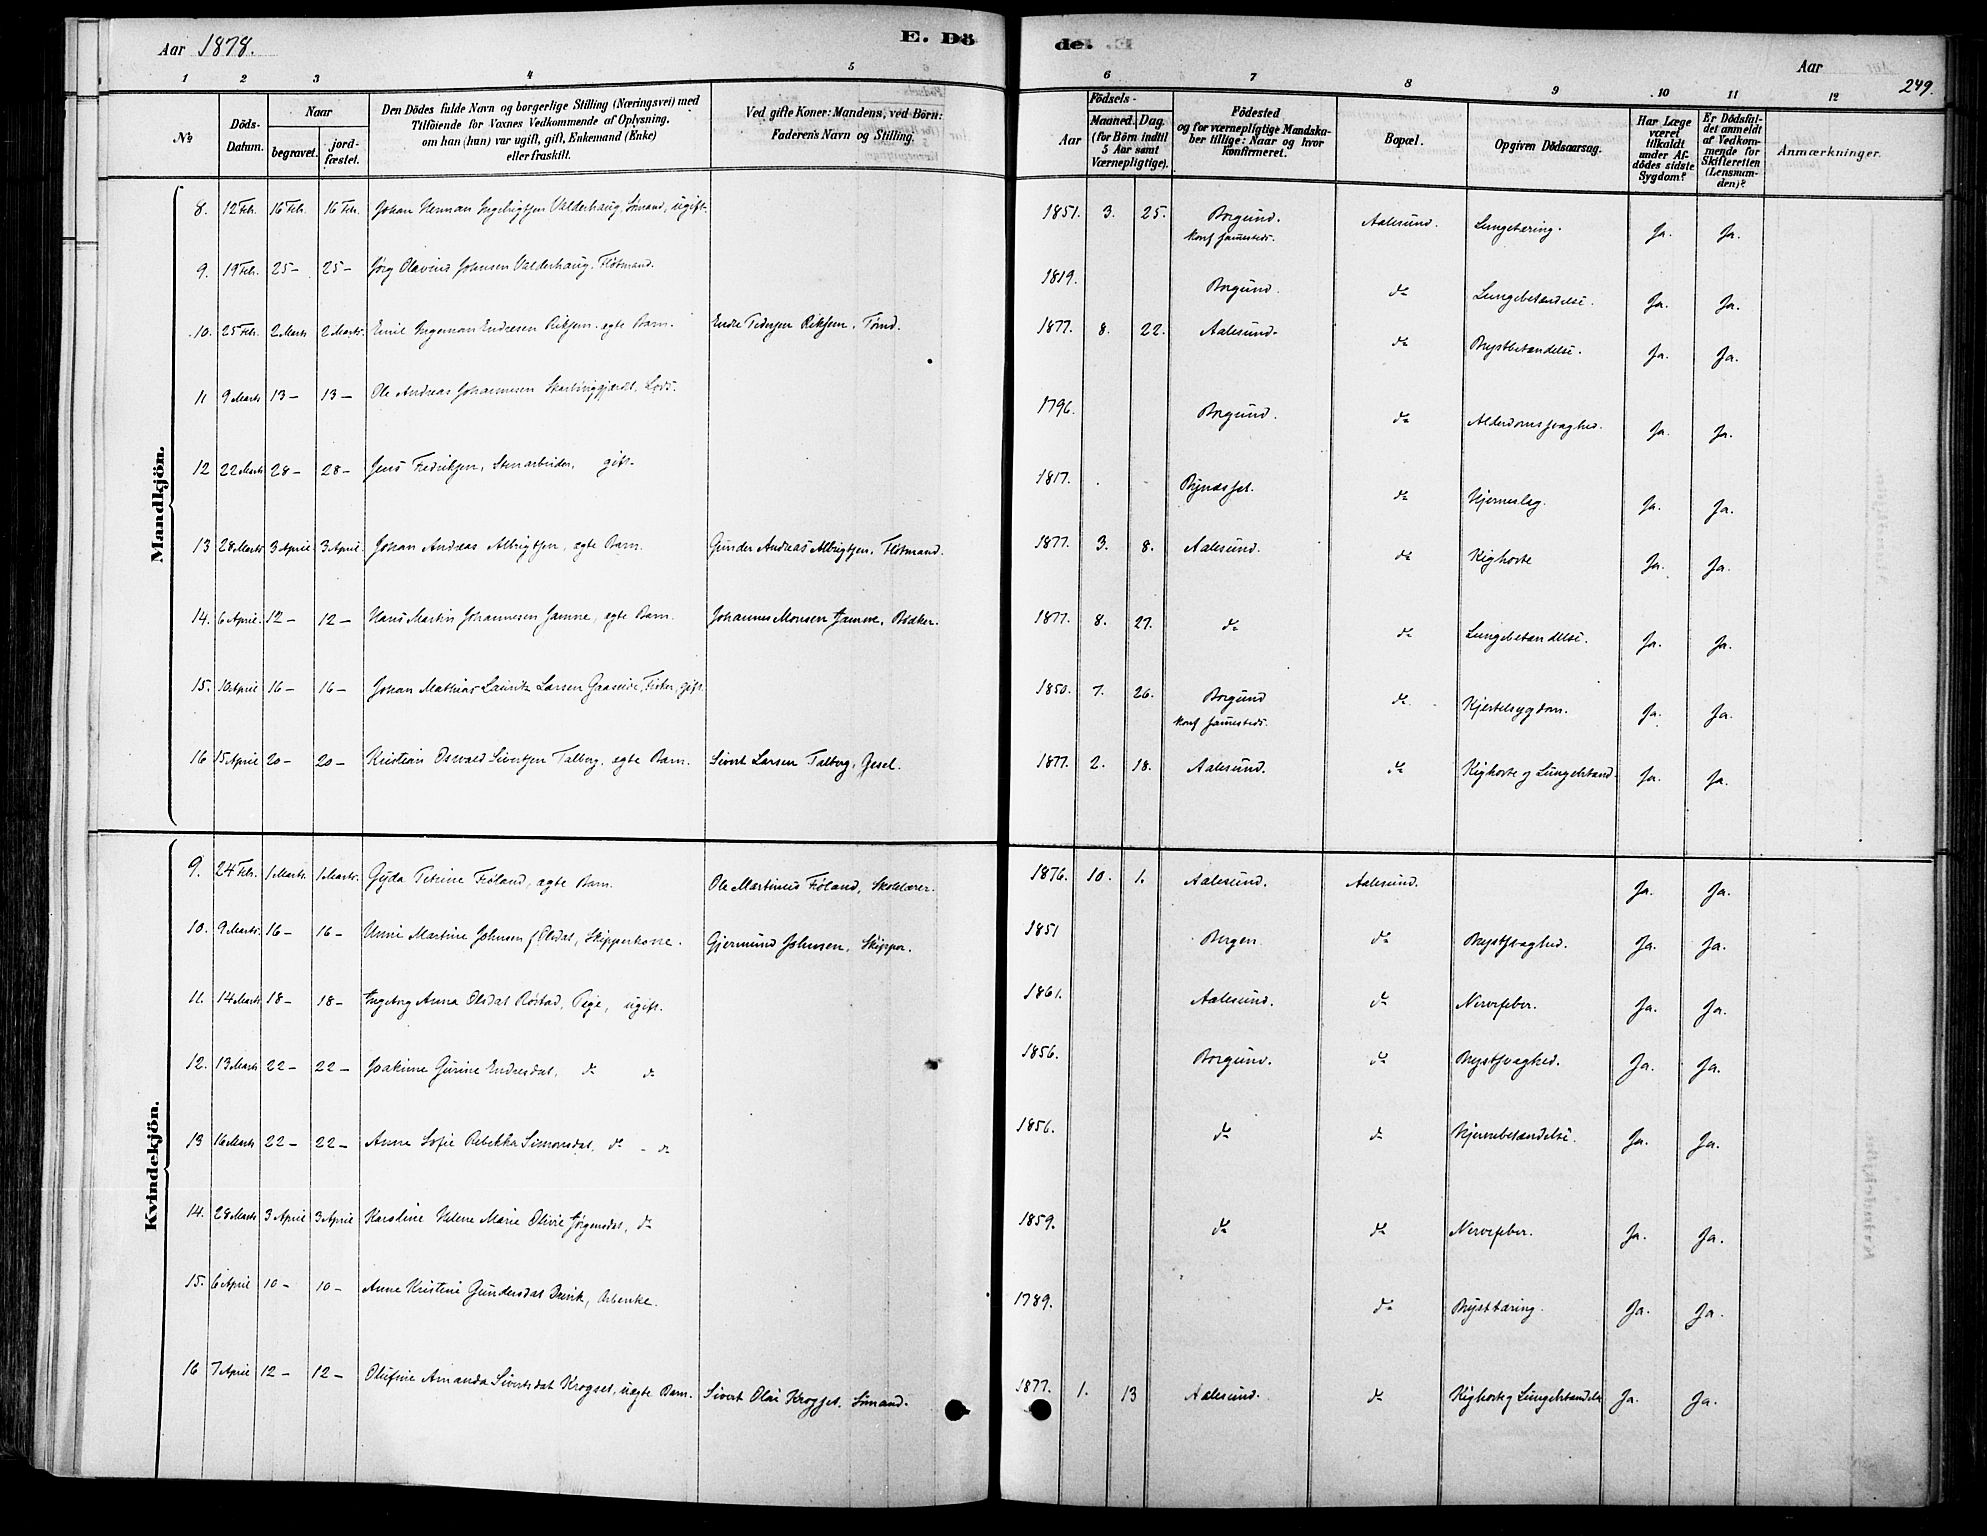 Aar 1878.
E. Dö
de.
Aar
249.
1 2 3 4 5 6 7 8 9 10 11 12
No
Döds-Datum.
Naar
begravet.
jord-fæstet.
Den Dödes fulde Navn og borgerlige Stilling (Næringsvei) med
Tilföiende for Voxnes Vedkommende af Oplysning,
om han (hun) var ugift, gift, Enkemand (Enke)
eller fraskilt.
Ved gifte Koner: Mandens, ved Börn:
Faderens Navn og Stilling.
Födsels-
Aar
Maaned. Dag.
(for Börn indtil
5 Aar samt
Værnepligtige).
Födested
og for værnepligtige Mandska-
ber tillige: Naar og hvor
konfirmeret.
Bopæl.
Opgiven Dödsaarsag.
Har Læge
været
tilkaldt
under Af-
dödes sidste
Sygdom?
Er Dödsfal-
det anmeldt
af Vedkom-
mende for
Skifteretten
(Lensman-
den)?
Anmærkninger.
Mandkjön.
8. 12 Feb. 16 Feb. 16 Feb. Johan Herman Ingebrigtsen Valderhaug, Sömand, ugift. 1851. 3. 25. Borgund. Aalesund. Lungetæring. Ja. Ja.
Konf. sammesteds.
9. 19 Feb. 25 - 25 - Jörg Olavius Johnsen Valderhaug. Flötmand. 1819. Borgund. do Lungebetændelse. Ja. Ja.
10. 25 Feb. 2 Marts 2 Marts. Emil Ingeman Endresen Riksen. egte Barn. Endre Pedersen Riksen, Tömd. 1877. 8. 22. Aalesund. do Brystbetændelse. Ja. Ja.
11 9 Marts 13 - 13 - Ole Andreas Johannesen Lods. 1796. Borgund. do Alderdomssvaghed. Ja. Ja.
12 22 Marts 28 - 28 - Jens Fredriksen, Stenarbeider, gift. 1817. Byndsset. do Hjerneslag. Ja. Ja.
13 28 Marts 3 April 3 April. Johan Andreas Albrigtsen, egte Barn. Gunder Andreas Albrigtsen, Flötmand. 1877. 3. 8. Aalesund. do Kighoste Ja. Ja.
14. 6 April. 12 - 12 - Hans Martin Johannesen Jamne, egte Barn. Johannes Monsen Jamne, Bödker. 1877. 8. 27. do do Lungebetændelse. Ja. Ja.
15. 10 April 16 - 16 - Johan Mathias Lauritz Larsen Graseide, Fisker, gift. 1850. 7. 26. Borgund do Kjertelsygdom. Ja. Ja.
Konf sammesteds.
16 15 April 20 - 20 - Kristian Osvald Sivertsen Talberg, egte Barn. Sivert Larsen Talberg, Gesel. 1877. 2. 18. Aalesund. do Kighoste og Lungebetænd. Ja. Ja.
Kvindekjön.
9. 24 Feb. 1 Marts 1 Marts. Gyda Petrine Fröland, egte Barn. Ole Martinus Fröland, Skolelærer. 1876. 10. 1. Aalesund. Aalesund. Ja. Ja.
10. 9 Marts. 16 - 16 - Unni Martine Johnsen f. Olsdat, Skipperkone. Gjermund Johnsen, Skipper. 1851 Bergen. do Brystsvaghed. Ja. Ja.
11. 14 Marts 18 - 18 - Ingeborg Anna Olsdat Röstad, Pige, ugift. 1861. Aalesund. do Nervefeber. Ja. Ja.
12. 13 Marts 22 - 22 - Joakime Gurine Endresdat, do do 1856. Borgund. do Brystsvaghed. Ja. Ja.
13 16 Marts 22 - 22 - Anne Sofie Rebekka Simonsdat, do - do 1856. do do Hjernebetændelse. Ja. Ja.
14. 28 Marts 3 April 3 April Karoline Helene Marie Olivie Jörgensdat, do 1859. do do Nervefeber. Ja. Ja.
15. 6 April 10 - 10 - Anne Kristine Gundersdat Arbenke. 1789. do Brysttæring. Ja. Ja.
16 7 April 12 - 12 - Olufine Amanda Sivertsdat Krogset, uægte Barn. Sivert Olai Krogset, Sömand. 1877. 1. 13 Aalesund. do Kighoste og Lungebetændelse Ja. Ja.